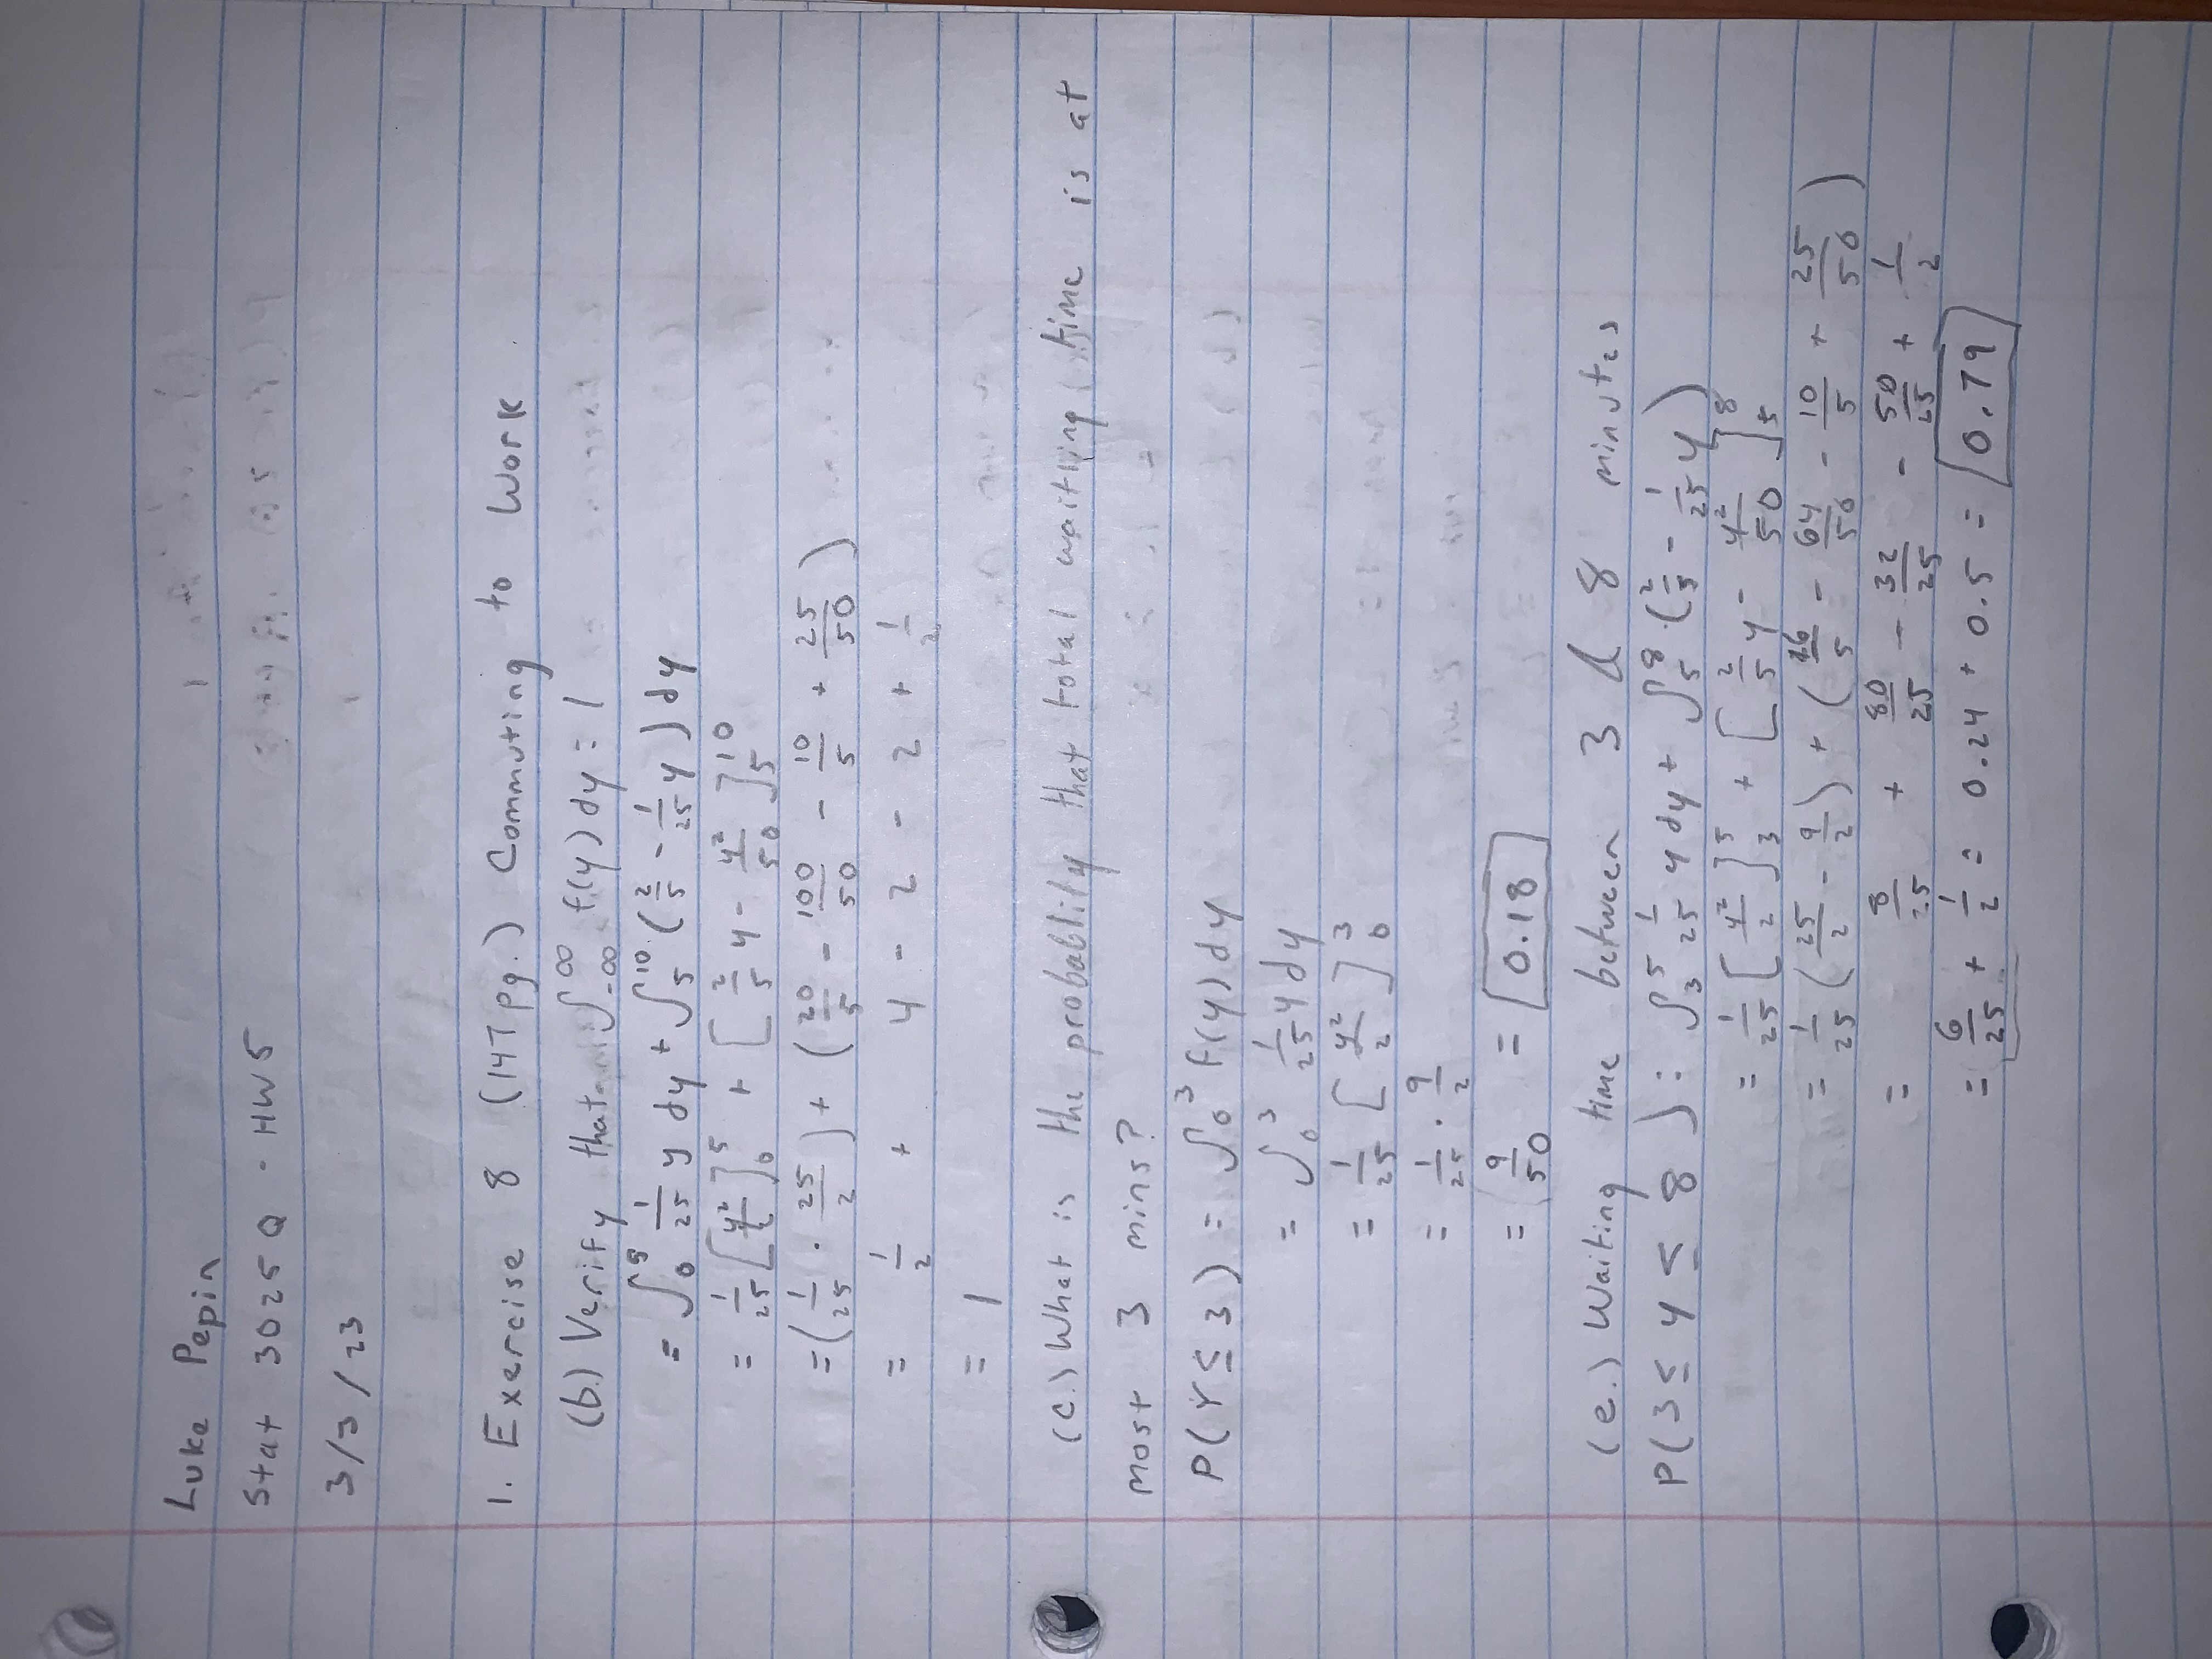 Luke Pepin
Stat 3025Q - HW5
3/3/23
1. Exercise 8 (147 pg.) Commuting to Work
(b.) Verify that ∫_{-∞}^{∞} f(y) dy = 1
= ∫_0^5 1/25 y dy + ∫_5^10 (2/5 - 1/25 y) dy
= 1/25 [y²/2]_0^5 + [2/5 y - y²/50]_5^10
= (1/25 · 25/2) + (20/5 - 100/50 - 10/5 + 25/50)
= 1/2 + 4 - 2 - 2 + 1/2
= 1
(c.) What is the probability that total waiting time is at
most 3 mins?
P(Y ≤ 3) = ∫_0^3 f(y) dy
= ∫_0^3 1/25 y dy
= 1/25 [y²/2]_0^3
= 1/25 · 9/2
= 9/50 = 0.18
(e.) Waiting time between 3 & 8 minutes
P(3 ≤ y ≤ 8): ∫_3^5 1/25 y dy + ∫_5^8 (2/5 - 1/25 y)
= 1/25 [y²/2]_3^5 + [2/5 y - y²/50]_5^8
= 1/25 (25/2 - 9/2) + (16/5 - 64/50 - 10/5 + 25/50)
= 8/25 + 80/25 - 32/25 - 50/25 + 1/2
= 6/25 + 1/2 = 0.24 + 0.5 = 0.74